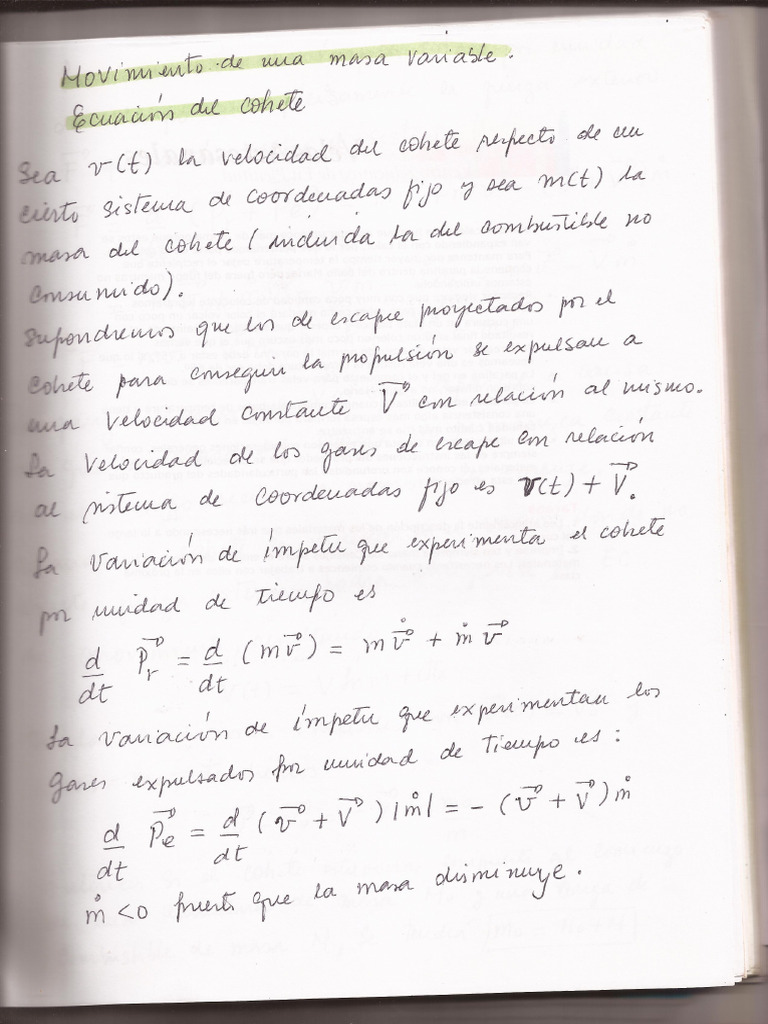 Movimiento de una masa variable.
Ecuación del cohete
Sea v(t) la velocidad del cohete respecto de un
cierto sistema de coordenadas fijo y sea m(t) la
masa del cohete (incluida la del combustible no
consumido).
Supondremos que los de escape proyectados por el
cohete para conseguir la propulsión se expulsan a
una velocidad constante V⃗ con relación al mismo.
La velocidad de los gases de escape con relación
al sistema de coordenadas fijo es v(t) + V⃗.
La variación de ímpetu que experimenta el cohete
por unidad de tiempo es
d/dt P⃗r = d/dt (mv⃗) = m v⃗̇ + ṁ v⃗
La variación de ímpetu que experimentan los
gases expulsados por unidad de tiempo es:
d/dt P⃗e = d/dt (v⃗ + V⃗) |ṁ| = - (v⃗ + V⃗) ṁ
ṁ < 0 puesto que la masa disminuye.